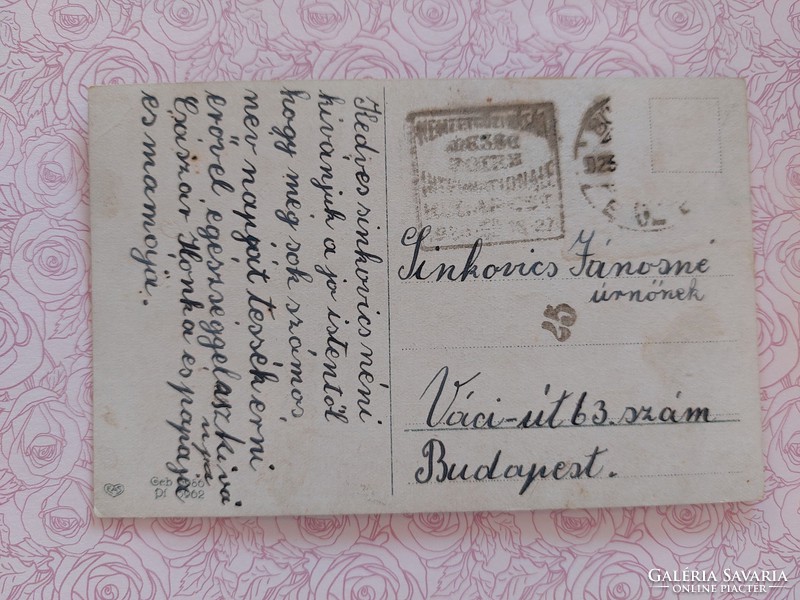 Kedves sinkovics néni
kivánjuk a jo istentöl
hogy még sok számos
nev napját tessék érni
erővel egészséggel azt kivá
njá
Császár Ilonka es papaja
es mamája..
NEMZETKÖZI VÁSÁR
INTERNATIONALE
925
Sinkovics Jánosné
úrnőnek
57
Váci-út 63. szám
Budapest.
GALÉRIA SAVARIA
ONLINE PIACTÉR